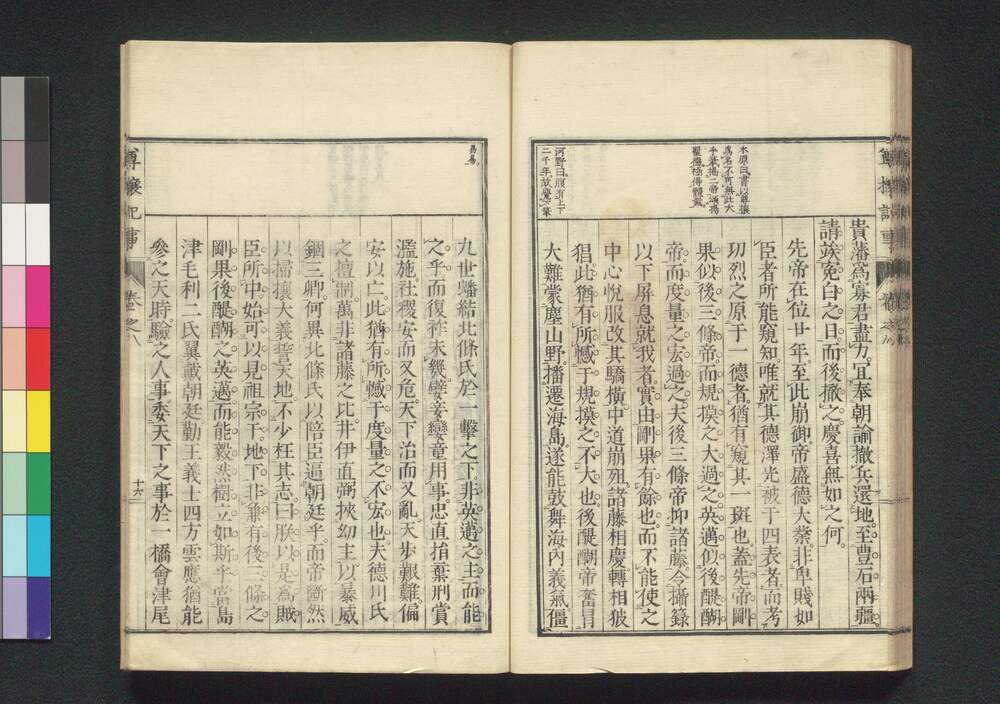 尊攘記事
卷之八
木原曰書以尊攘
為名不可無此大
手筆揚二帝頌揚
河野曰腹有上下
二千年故慶此筆
貴藩爲寡君盡力宜奉朝諭撤兵還地至豊石兩疆
請竢寃白之日而後撤之慶喜無如之何
先帝在位廿年至此崩御帝盛德大業非卑賤如
臣者所能窺知唯就其德澤光被于四表者而考
功烈之原于一德者猶有窺其一斑也蓋先帝剛
果似後三條帝而規摸之大過之英邁似後醍醐
帝而度量之宏過之夫後三條帝抑諸藤令攝籙
以下屏息就我者實由剛果有餘也而不能使之
中心悅服改其驕横中道崩殂諸藤相慶轉相彼
猖此猶有所憾于規摸之不大也後醍醐帝奮冒
大難蒙塵山野播遷海島遂能鼓舞海內義氣僵
易易
九世蟠結北條氏於一擊之下非英邁之主而能
之乎而復祚未幾嬖妾孌童用事忠直揃棄刑賞
濫施社稷安而又危天下治而又亂天步艱難偏
安以亡此猶有所憾于度量之不宏也夫德川氏
之擅制萬非諸藤之比井伊直弼挾幼主以暴威
錮三卿何異北條氏以陪臣逼朝廷乎而帝斷然
以掃攘大義誓天地不少枉其志曰朕以是爲賊
臣所中始可以見祖宗于地下非兼有後三條之
剛果後醍醐之英邁而能毅然樹立如斯乎當島
津毛利二氏翼戴朝廷勤王義士四方雲應猶能
參之天時驗之人事委天下之事於一橋會津尾
尊攘記事
卷之八
十六